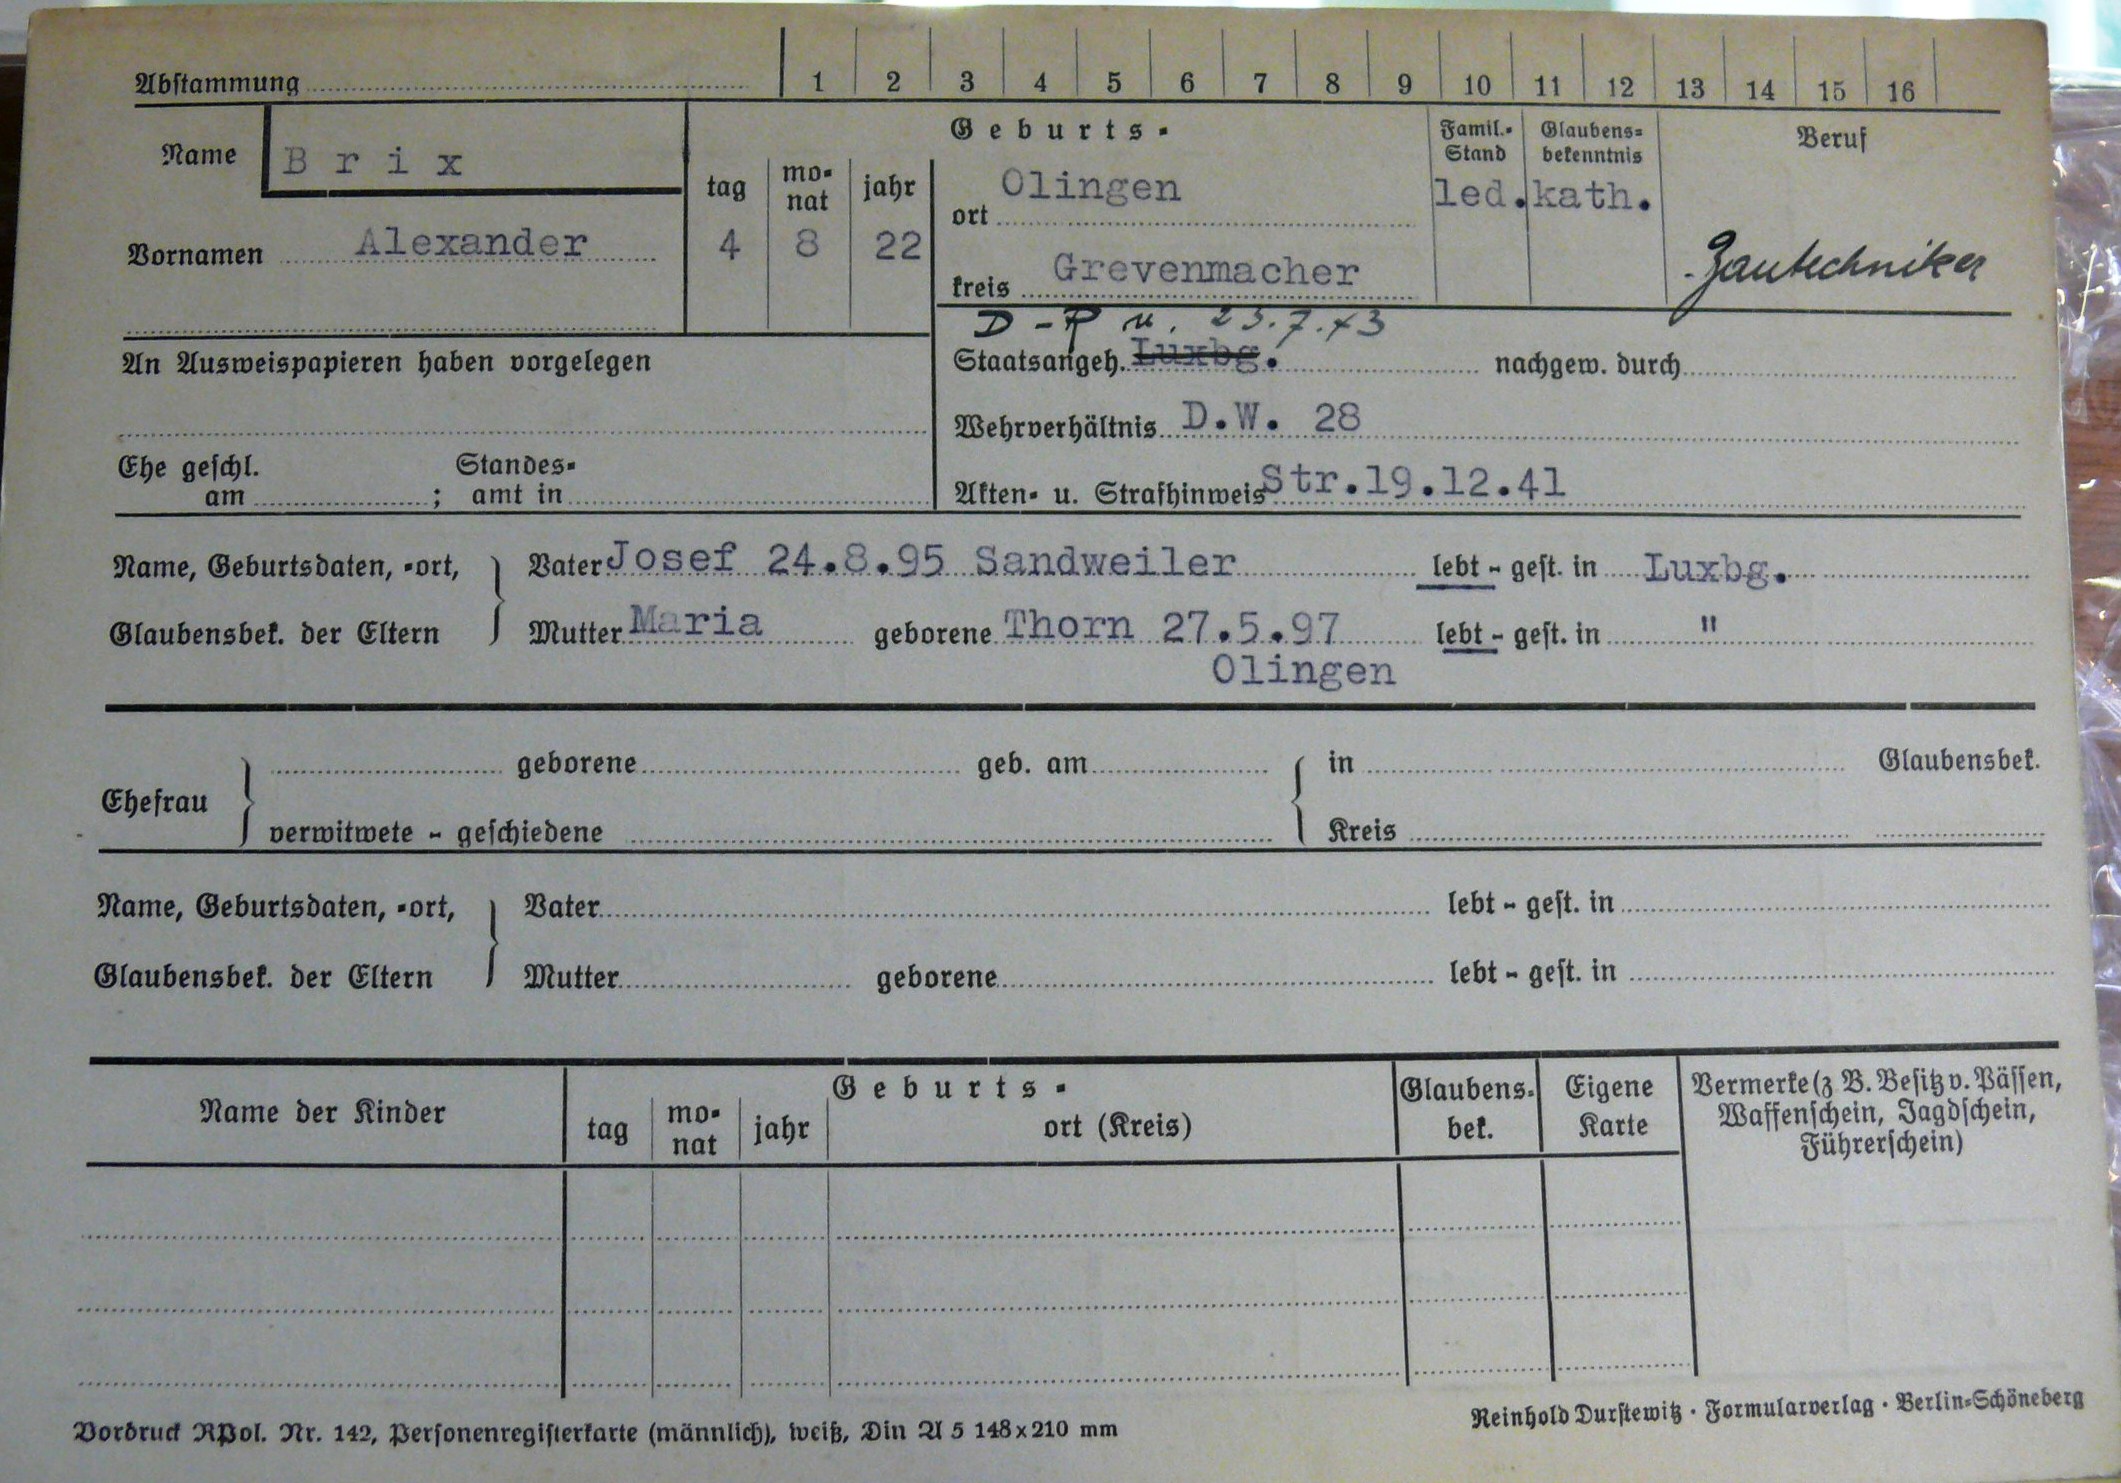 Abstammung 1 2 3 4 5 6 7 8 9 10 11 12 13 14 15 16
Name Brix
Vornamen Alexander
Geburts-
tag monat jahr
4 8 22
ort Olingen
kreis Grevenmacher
Famil.-Stand
led.
Glaubens-bekenntnis
kath.
Beruf
Bautechniker
D - P u. 23.7.43
An Ausweispapieren haben vorgelegen
Staatsangeh. Luxbg. nachgew. durch
Wehrverhältnis D.W. 28
Ehe geschl. am ; Standes-amt in
Akten- u. Strafhinweis Str.19.12.41
Name, Geburtsdaten, -ort, Vater Josef 24.8.95 Sandweiler lebt - gest. in Luxbg.
Glaubensbek. der Eltern Mutter Maria geborene Thorn 27.5.97 lebt - gest. in "
Olingen
Ehefrau geborene geb. am in Glaubensbek.
verwitwete - geschiedene Kreis
Name, Geburtsdaten, -ort, Vater lebt - gest. in
Glaubensbek. der Eltern Mutter geborene lebt - gest. in
Name der Kinder
Geburts-
tag monat jahr ort (Kreis)
Glaubens-bek.
Eigene Karte
Vermerke (z B. Besitz v. Pässen,
Waffenschein, Jagdschein,
Führerschein)
Vordruck RPol. Nr. 142, Personenregisterkarte (männlich), weiß, Din A 5 148x210 mm
Reinhold Durstewitz · Formularverlag · Berlin-Schöneberg